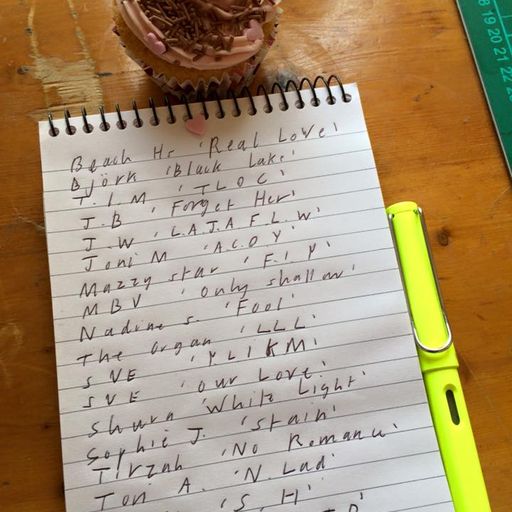 Beach Hs 'Real Love'
Björk 'Black Lake'
T.I.M 'TLOC'
J.B 'Forget Her'
J.W 'L.A.J.A.F.L.W'
Joni M 'A.C.O.Y'
Mazzy star 'F.I.Y'
MBV 'only shallow'
Nadine S. 'Fool'
The organ 'LLL'
SVE 'YLIKM'
SVE 'our Love'
Shura 'White Light'
Sophie J. 'stain'
Tirzah 'No Romance'
Tori A. 'N. Lad'
'S.H'
18 19 20 21 22